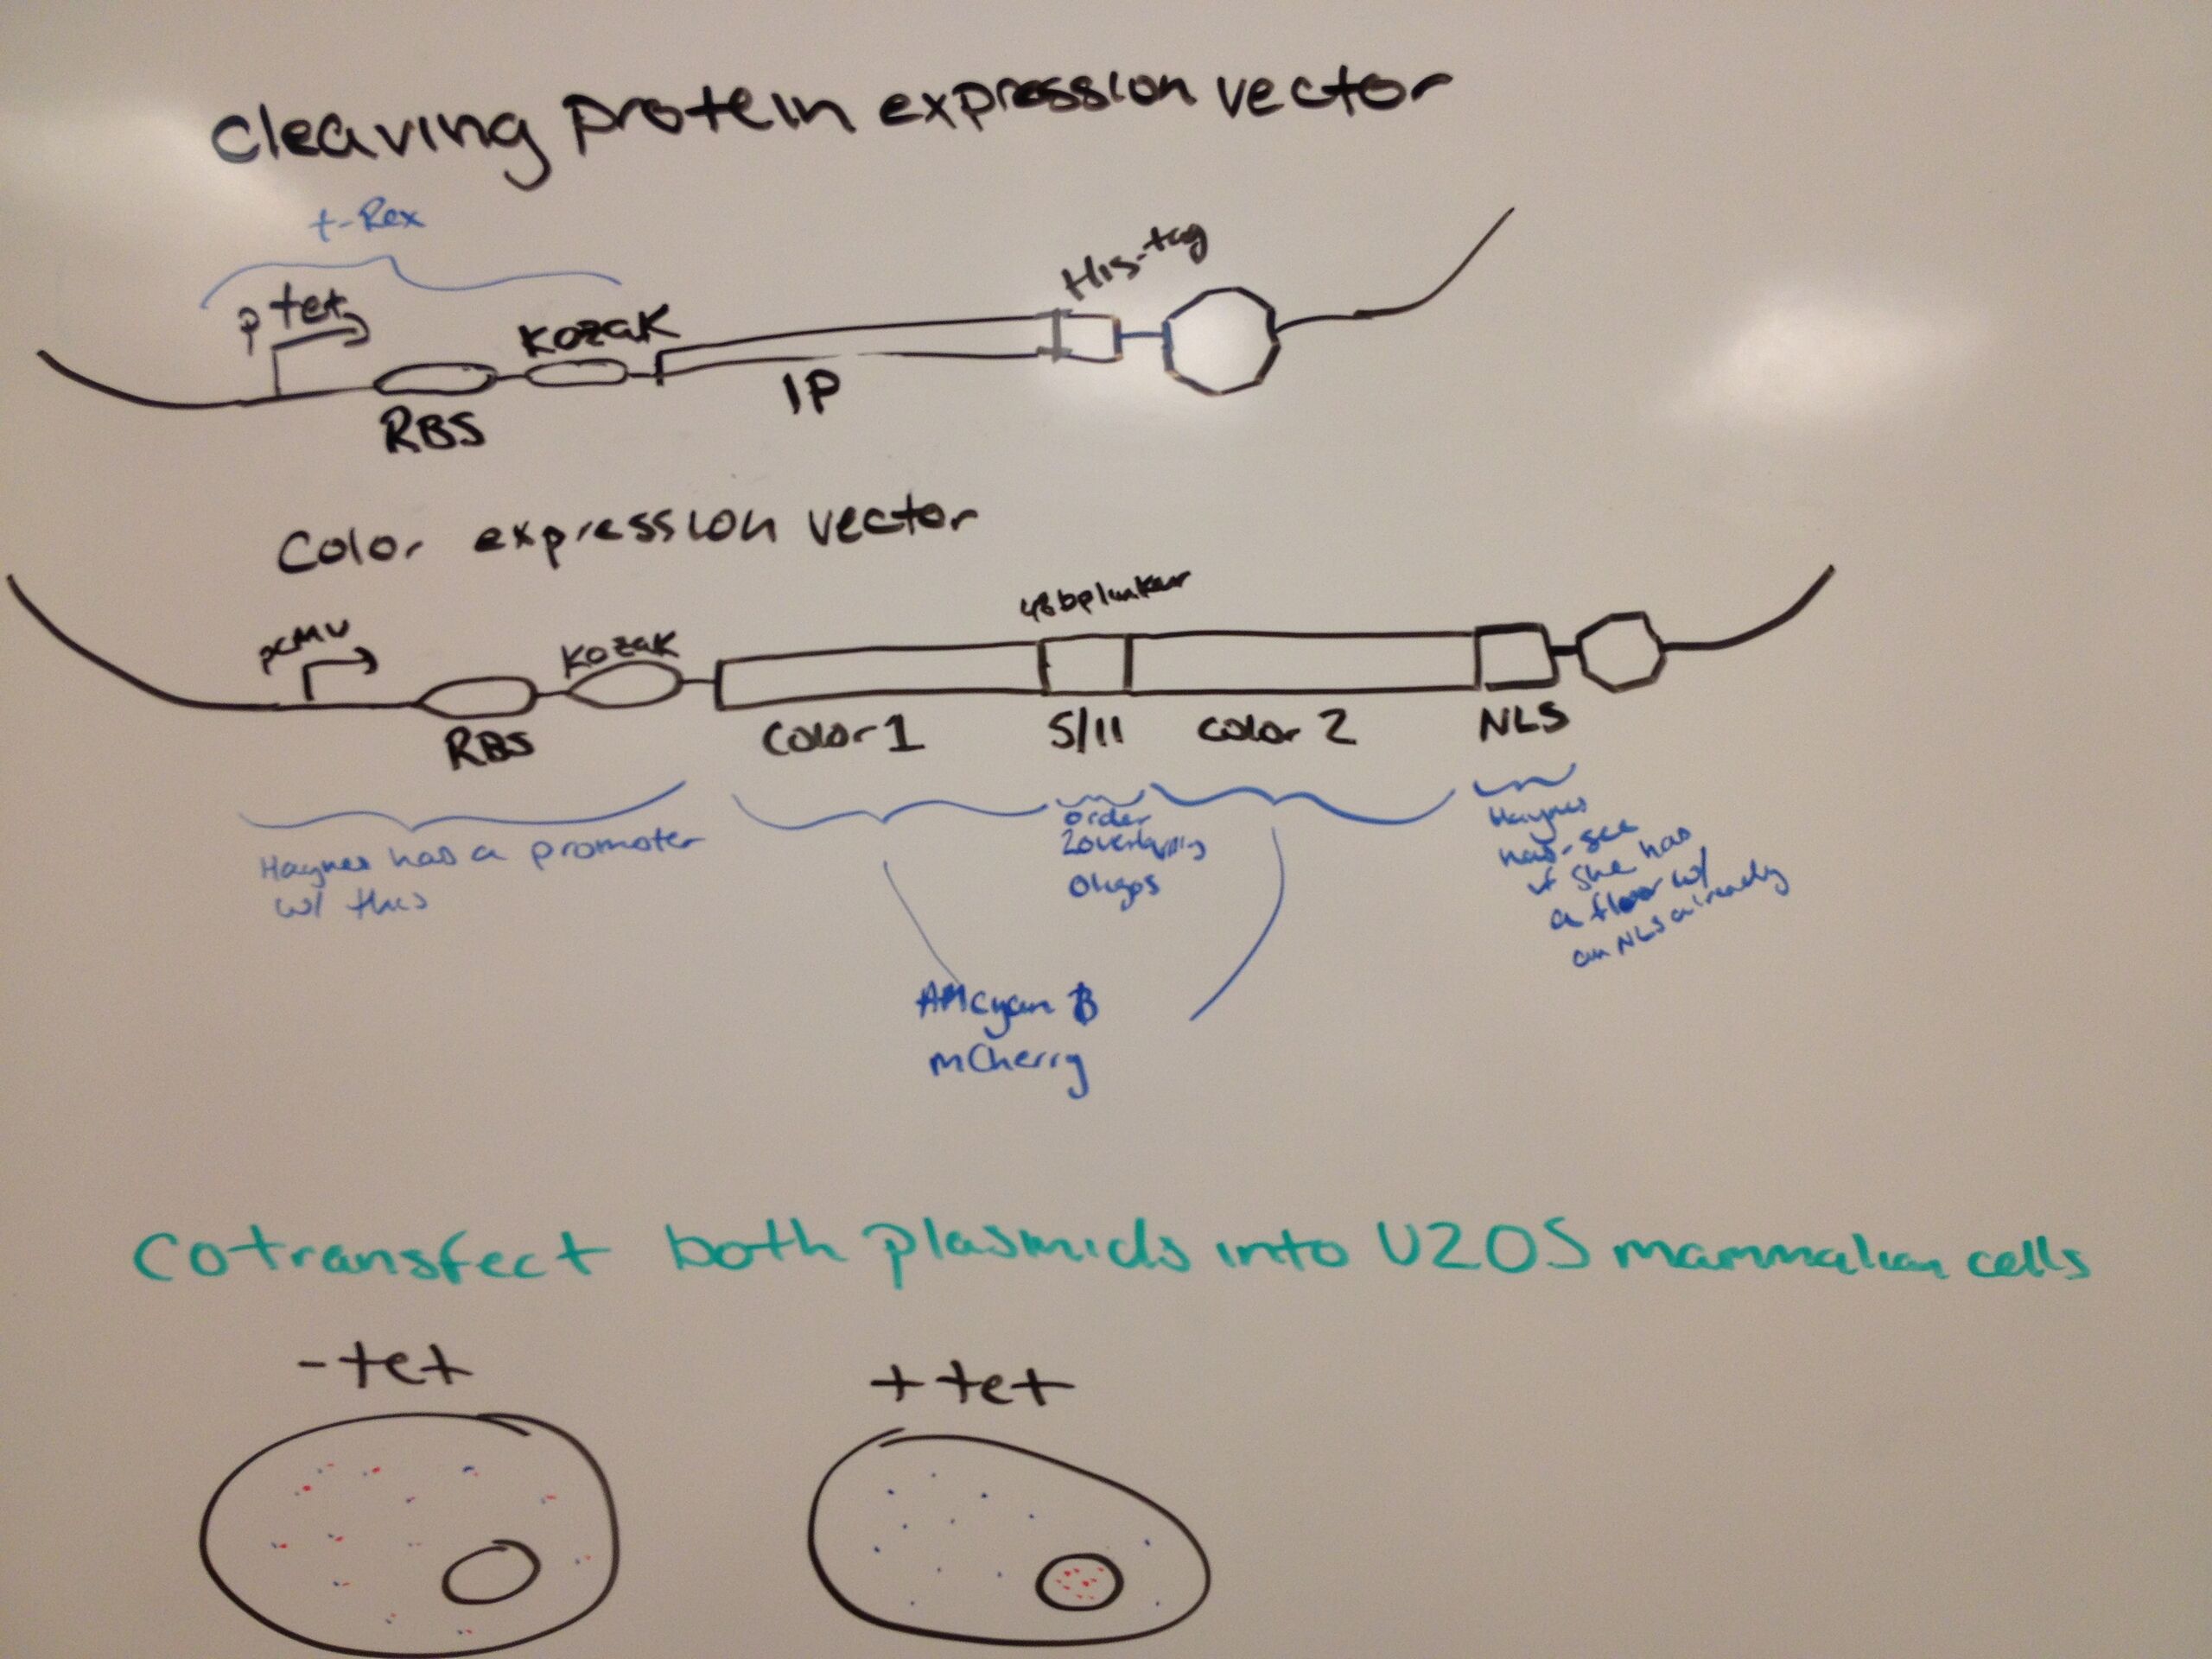 cleaving protein expression vector
t-Rex
p tet
Kozak
His-tag
RBS
IP
Color expression vector
pCMV
Kozak
48bp linker
RBS
Color 1
S/11
color 2
NLS
Haynes has a promoter
w/ this
order
2 overlapping
oligos
Haynes
has - see
if she has
a fluor w/
an NLS already
AmCyan &
mCherry
Cotransfect both plasmids into U2OS mammalian cells
-tet
+ tet